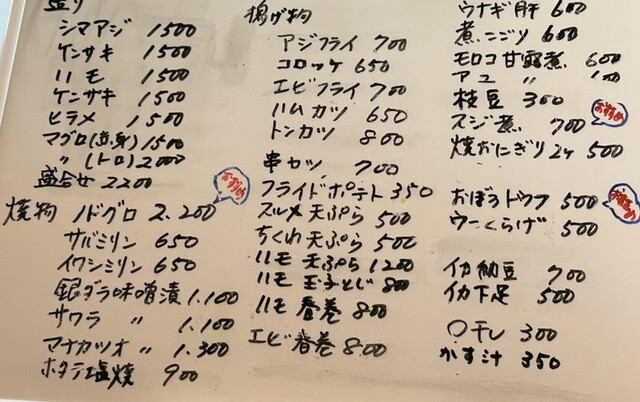 シマアジ 1500
ケンサキ 1500
ハモ 1500
ケンサキ 1500
ヒラメ 1500
マグロ(赤身) 1500
〃 (トロ) 2000
盛合せ 2200
おすすめ
焼物 ノドグロ 2.200
サバミリン 650
イワシミリン 650
銀ダラ味噌漬 1.100
サワラ 〃 1.100
マナカツオ 〃 1.300
ホタテ塩焼 900
揚げ物
アジフライ 700
コロッケ 650
エビフライ 700
ハムカツ 650
トンカツ 800
串カツ 700
フライドポテト 350
スルメ天ぷら 500
ちくわ天ぷら 500
ハモ天ぷら 1200
ハモ玉子とじ 800
ハモ春巻 800
エビ春巻 800
ウナギ肝 600
煮こごり 600
モロコ甘露煮 600
アユ 〃
枝豆 300
おすすめ
スジ煮 700
焼おにぎり2ヶ 500
おぼろトウフ 500
ウーくらげ 500
イカ納豆 700
イカ下足 500
〇干し 300
かす汁 350